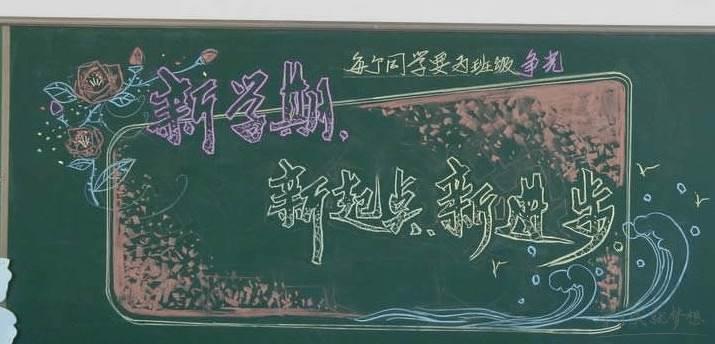 每个同学要为班级争光
新学期、
新起点、新进步
梦想